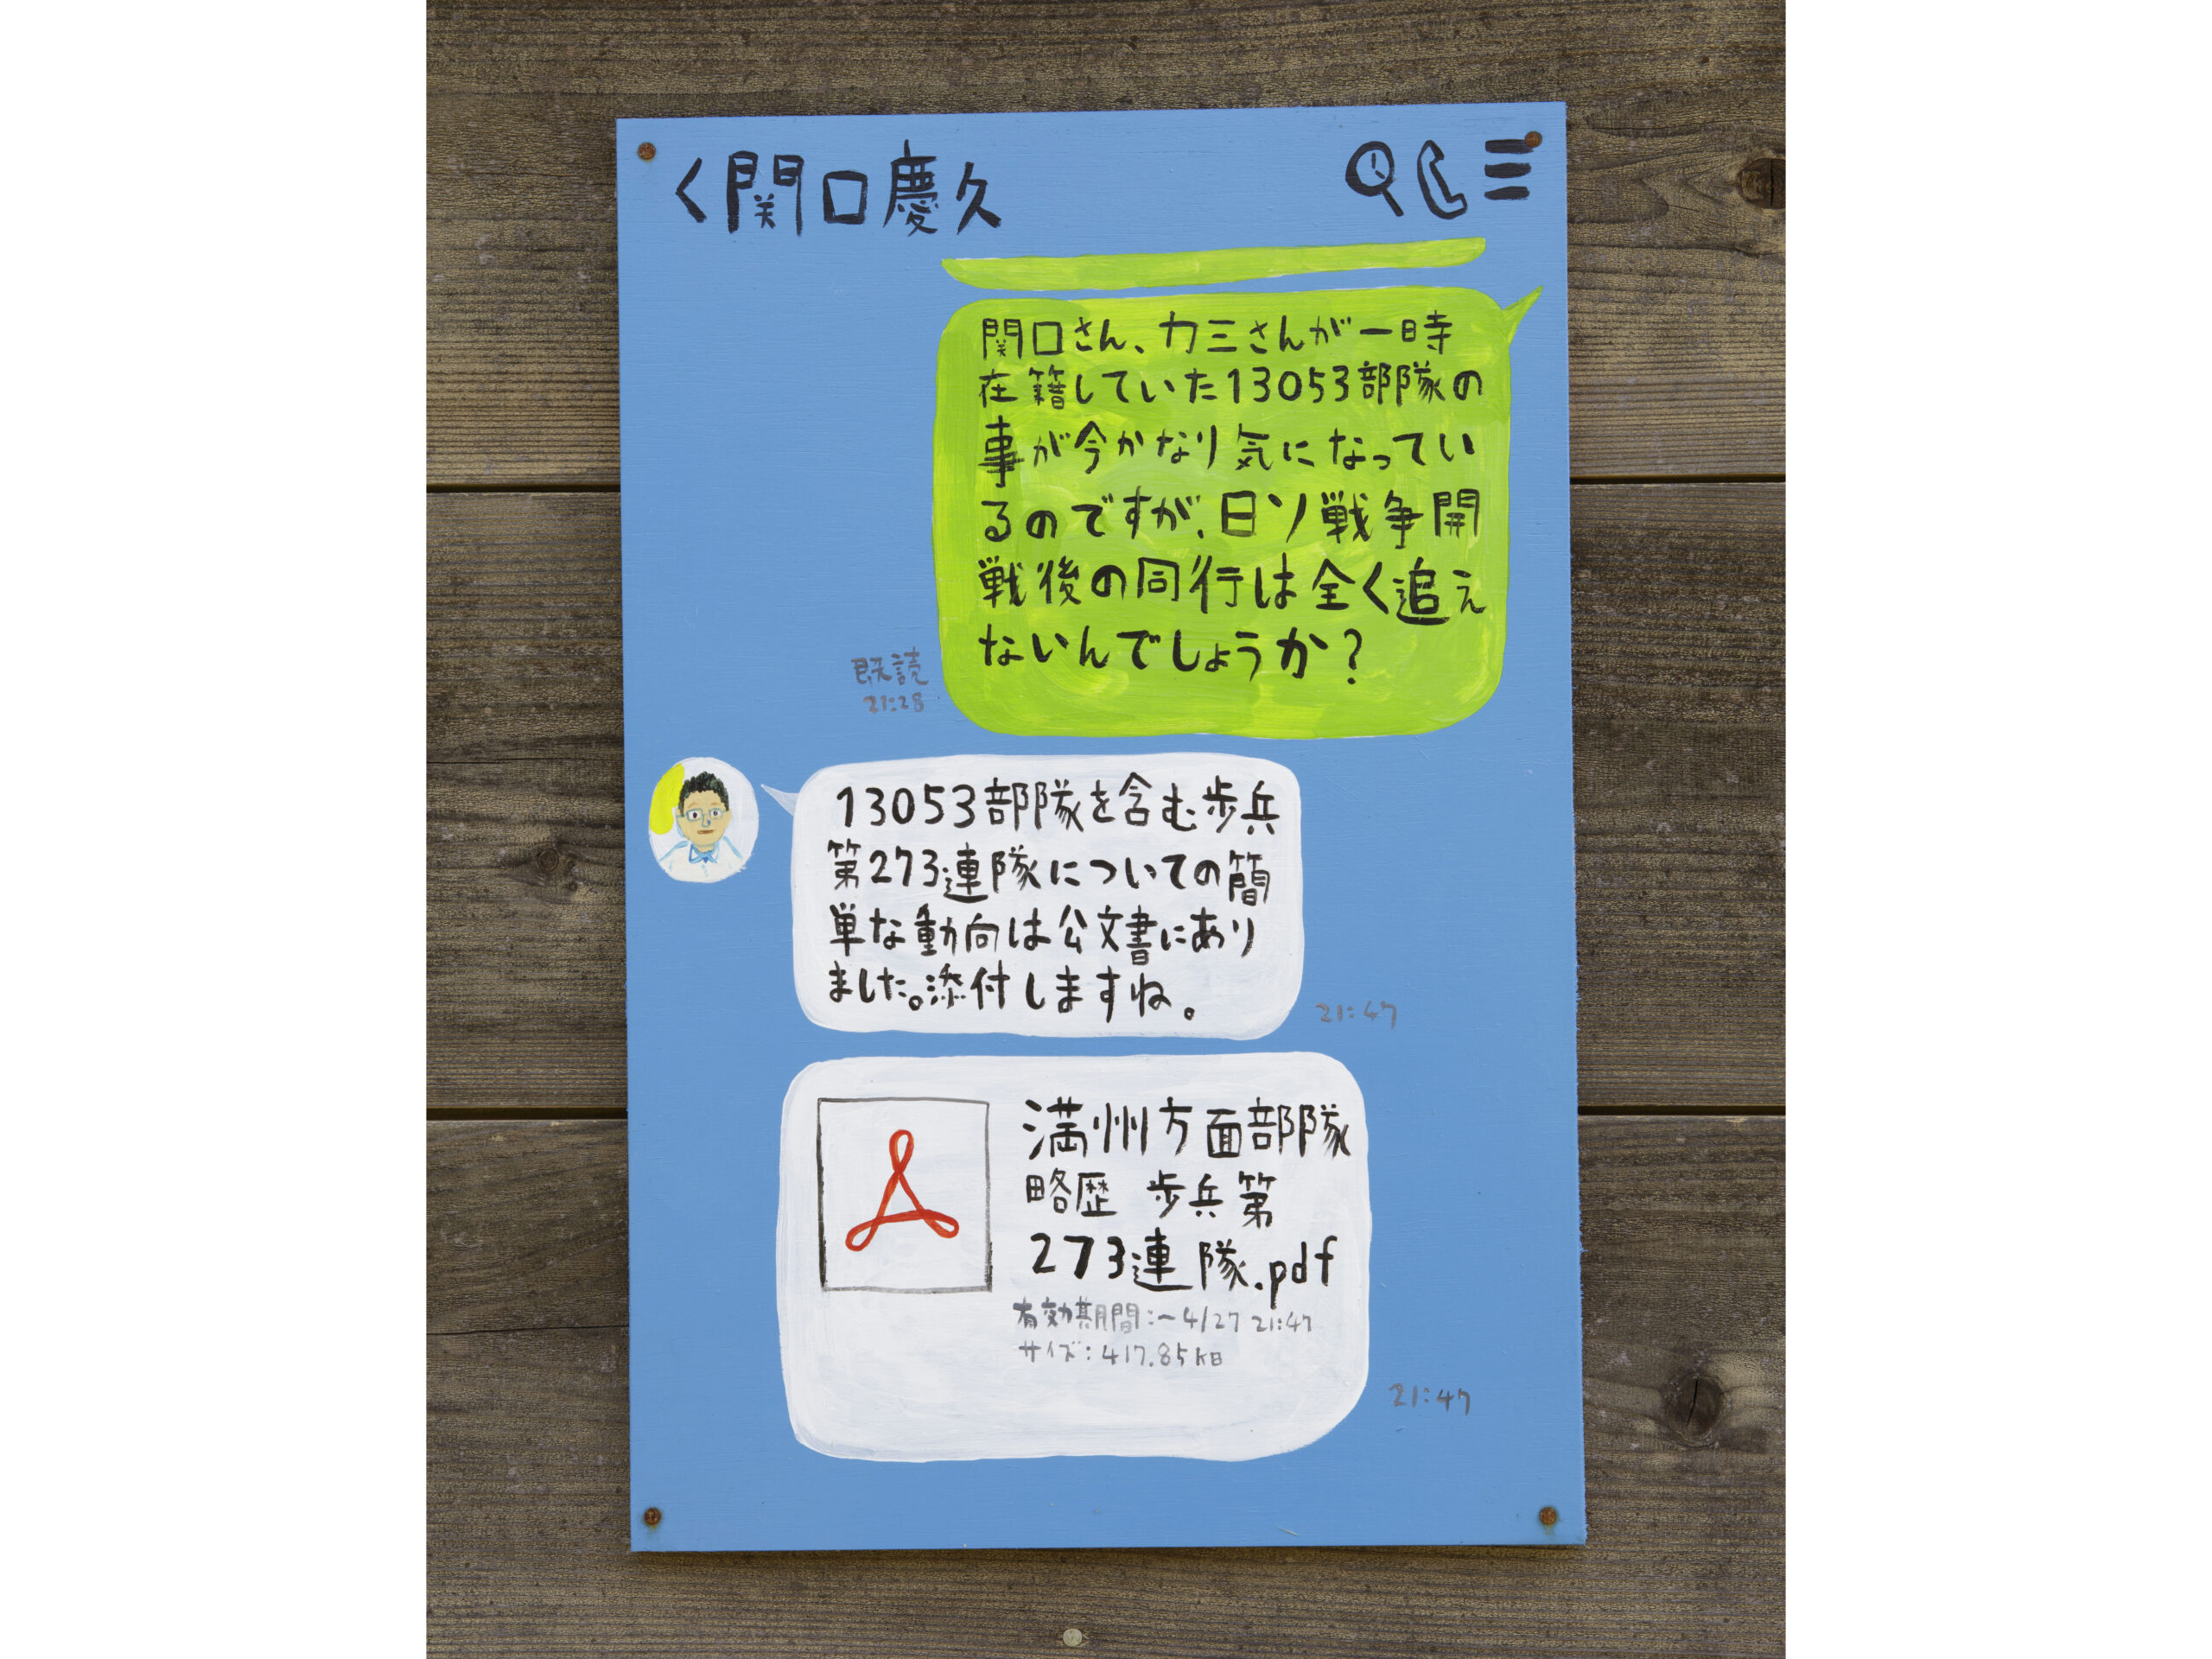 <関口慶久
関口さん、力三さんが一時
在籍していた13053部隊の
事が今かなり気になってい
るのですが、日ソ戦争開
戦後の同行は全く追え
ないんでしょうか？
既読
21:28
13053部隊を含む歩兵
第273連隊についての簡
単な動向は公文書にあり
ました。添付しますね。
21:47
満州方面部隊
略歴 歩兵第
273連隊.pdf
有効期間:~4/27 21:47
サイズ:417.85KB
21:47